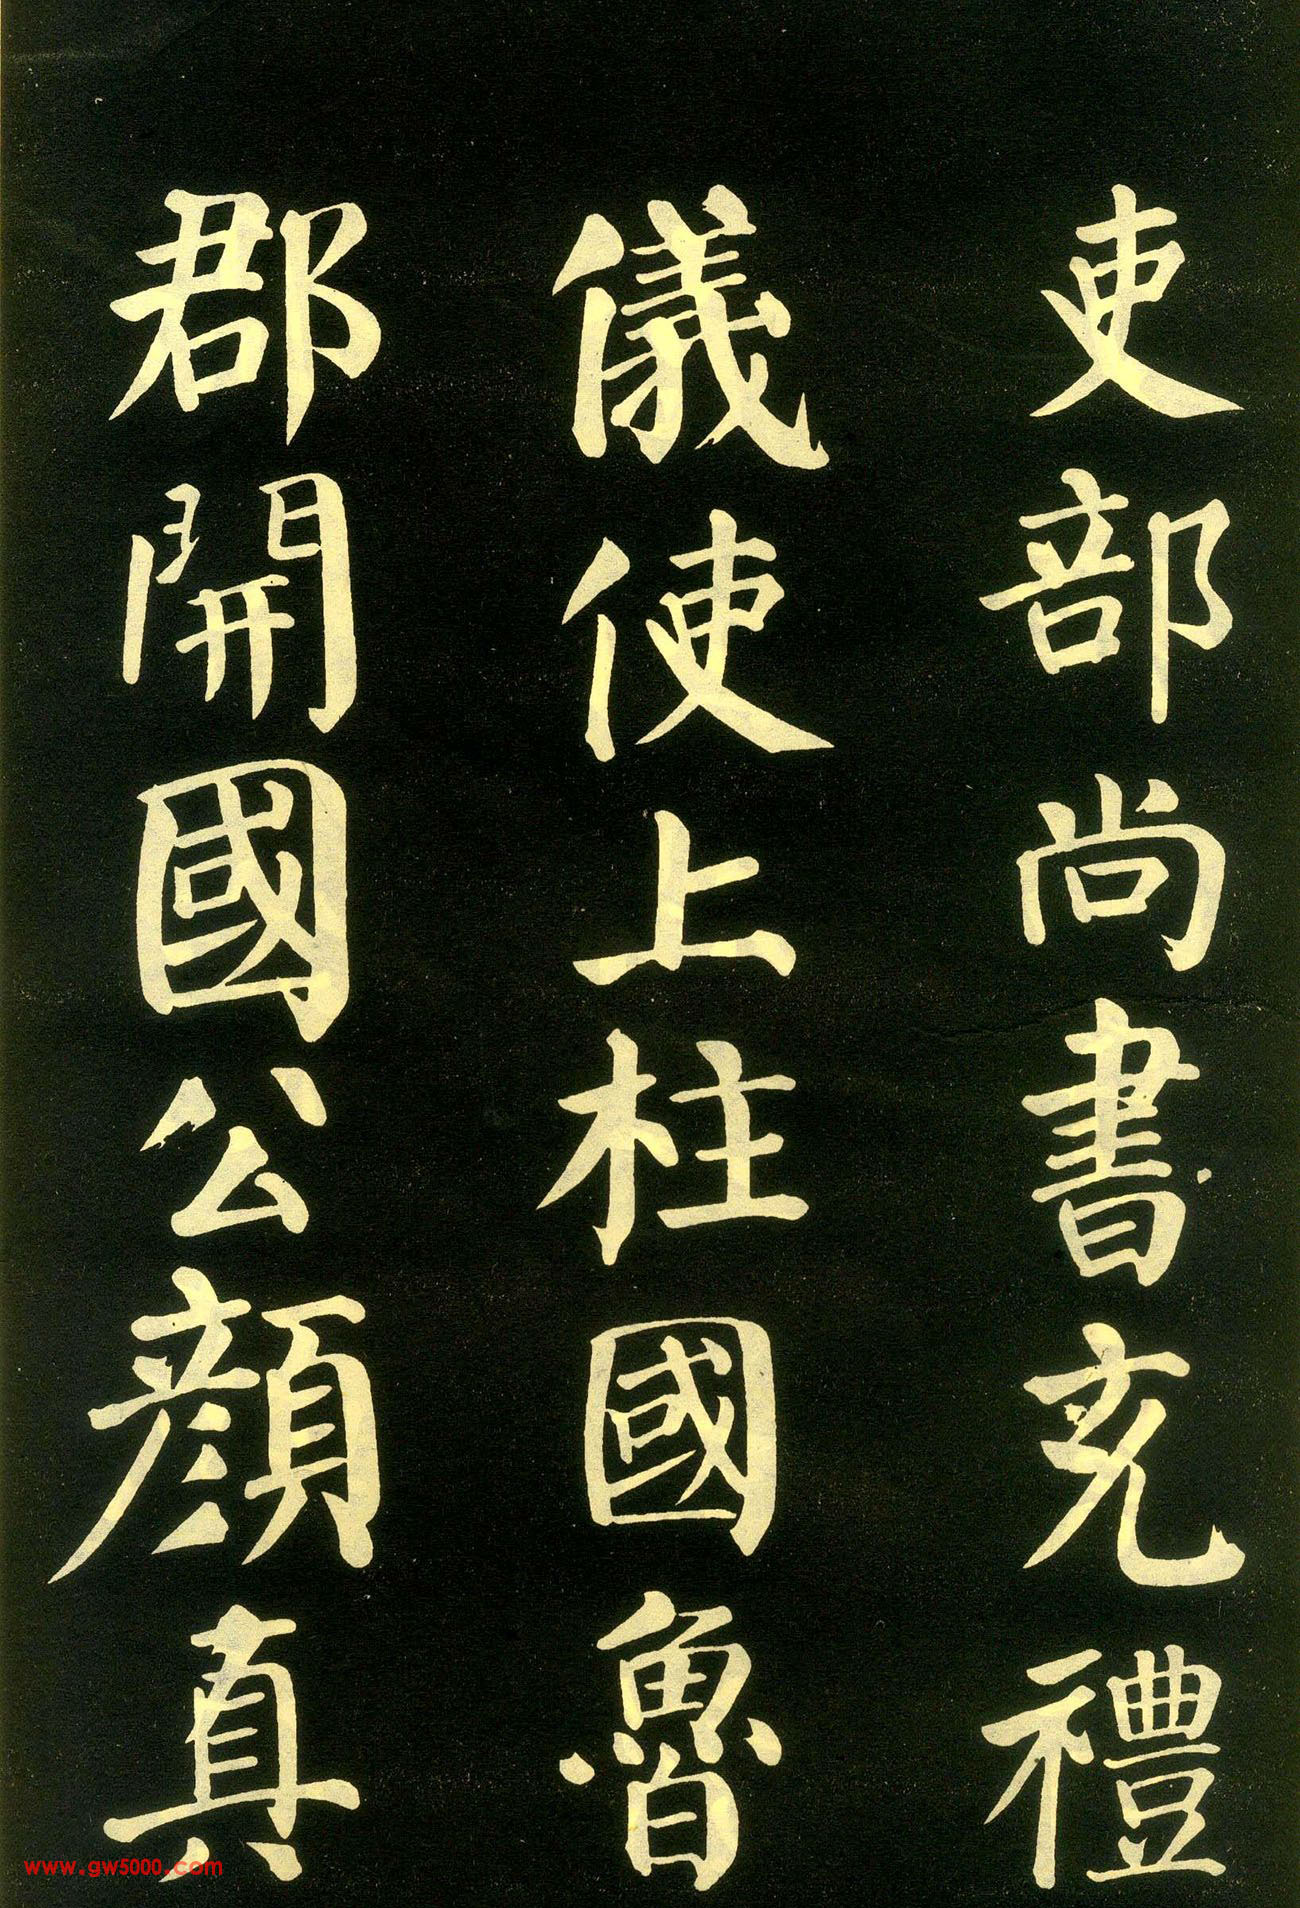 吏部尚書充禮
儀使上柱國魯
郡開國公顏真
www.gw5000.com